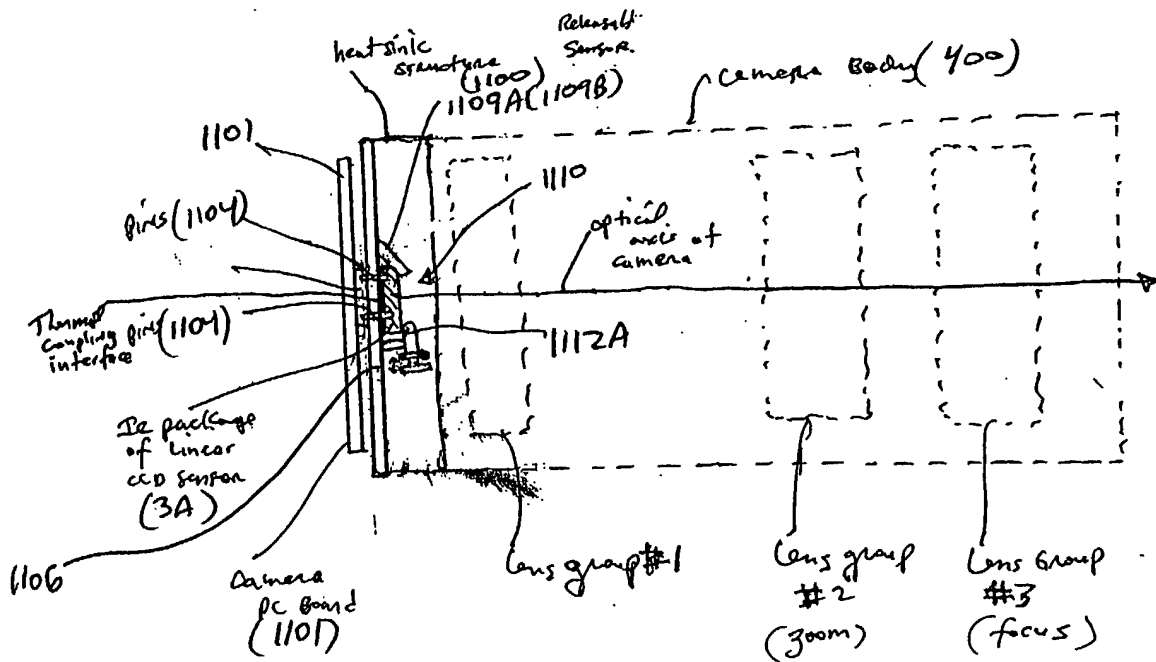 heatsink
structure
(1100)
Releasable
Sensor
1109A (1109B)
camera Body (400)
1101
1110
pins (1104)
optical
axis of
camera
Thermal
coupling
interface
pins (1104)
1112A
IC package
of Linear
CCD sensor
(3A)
1106
Camera
PC Board
(1101)
Lens group #1
Lens group
#2
(zoom)
Lens Group
#3
(focus)